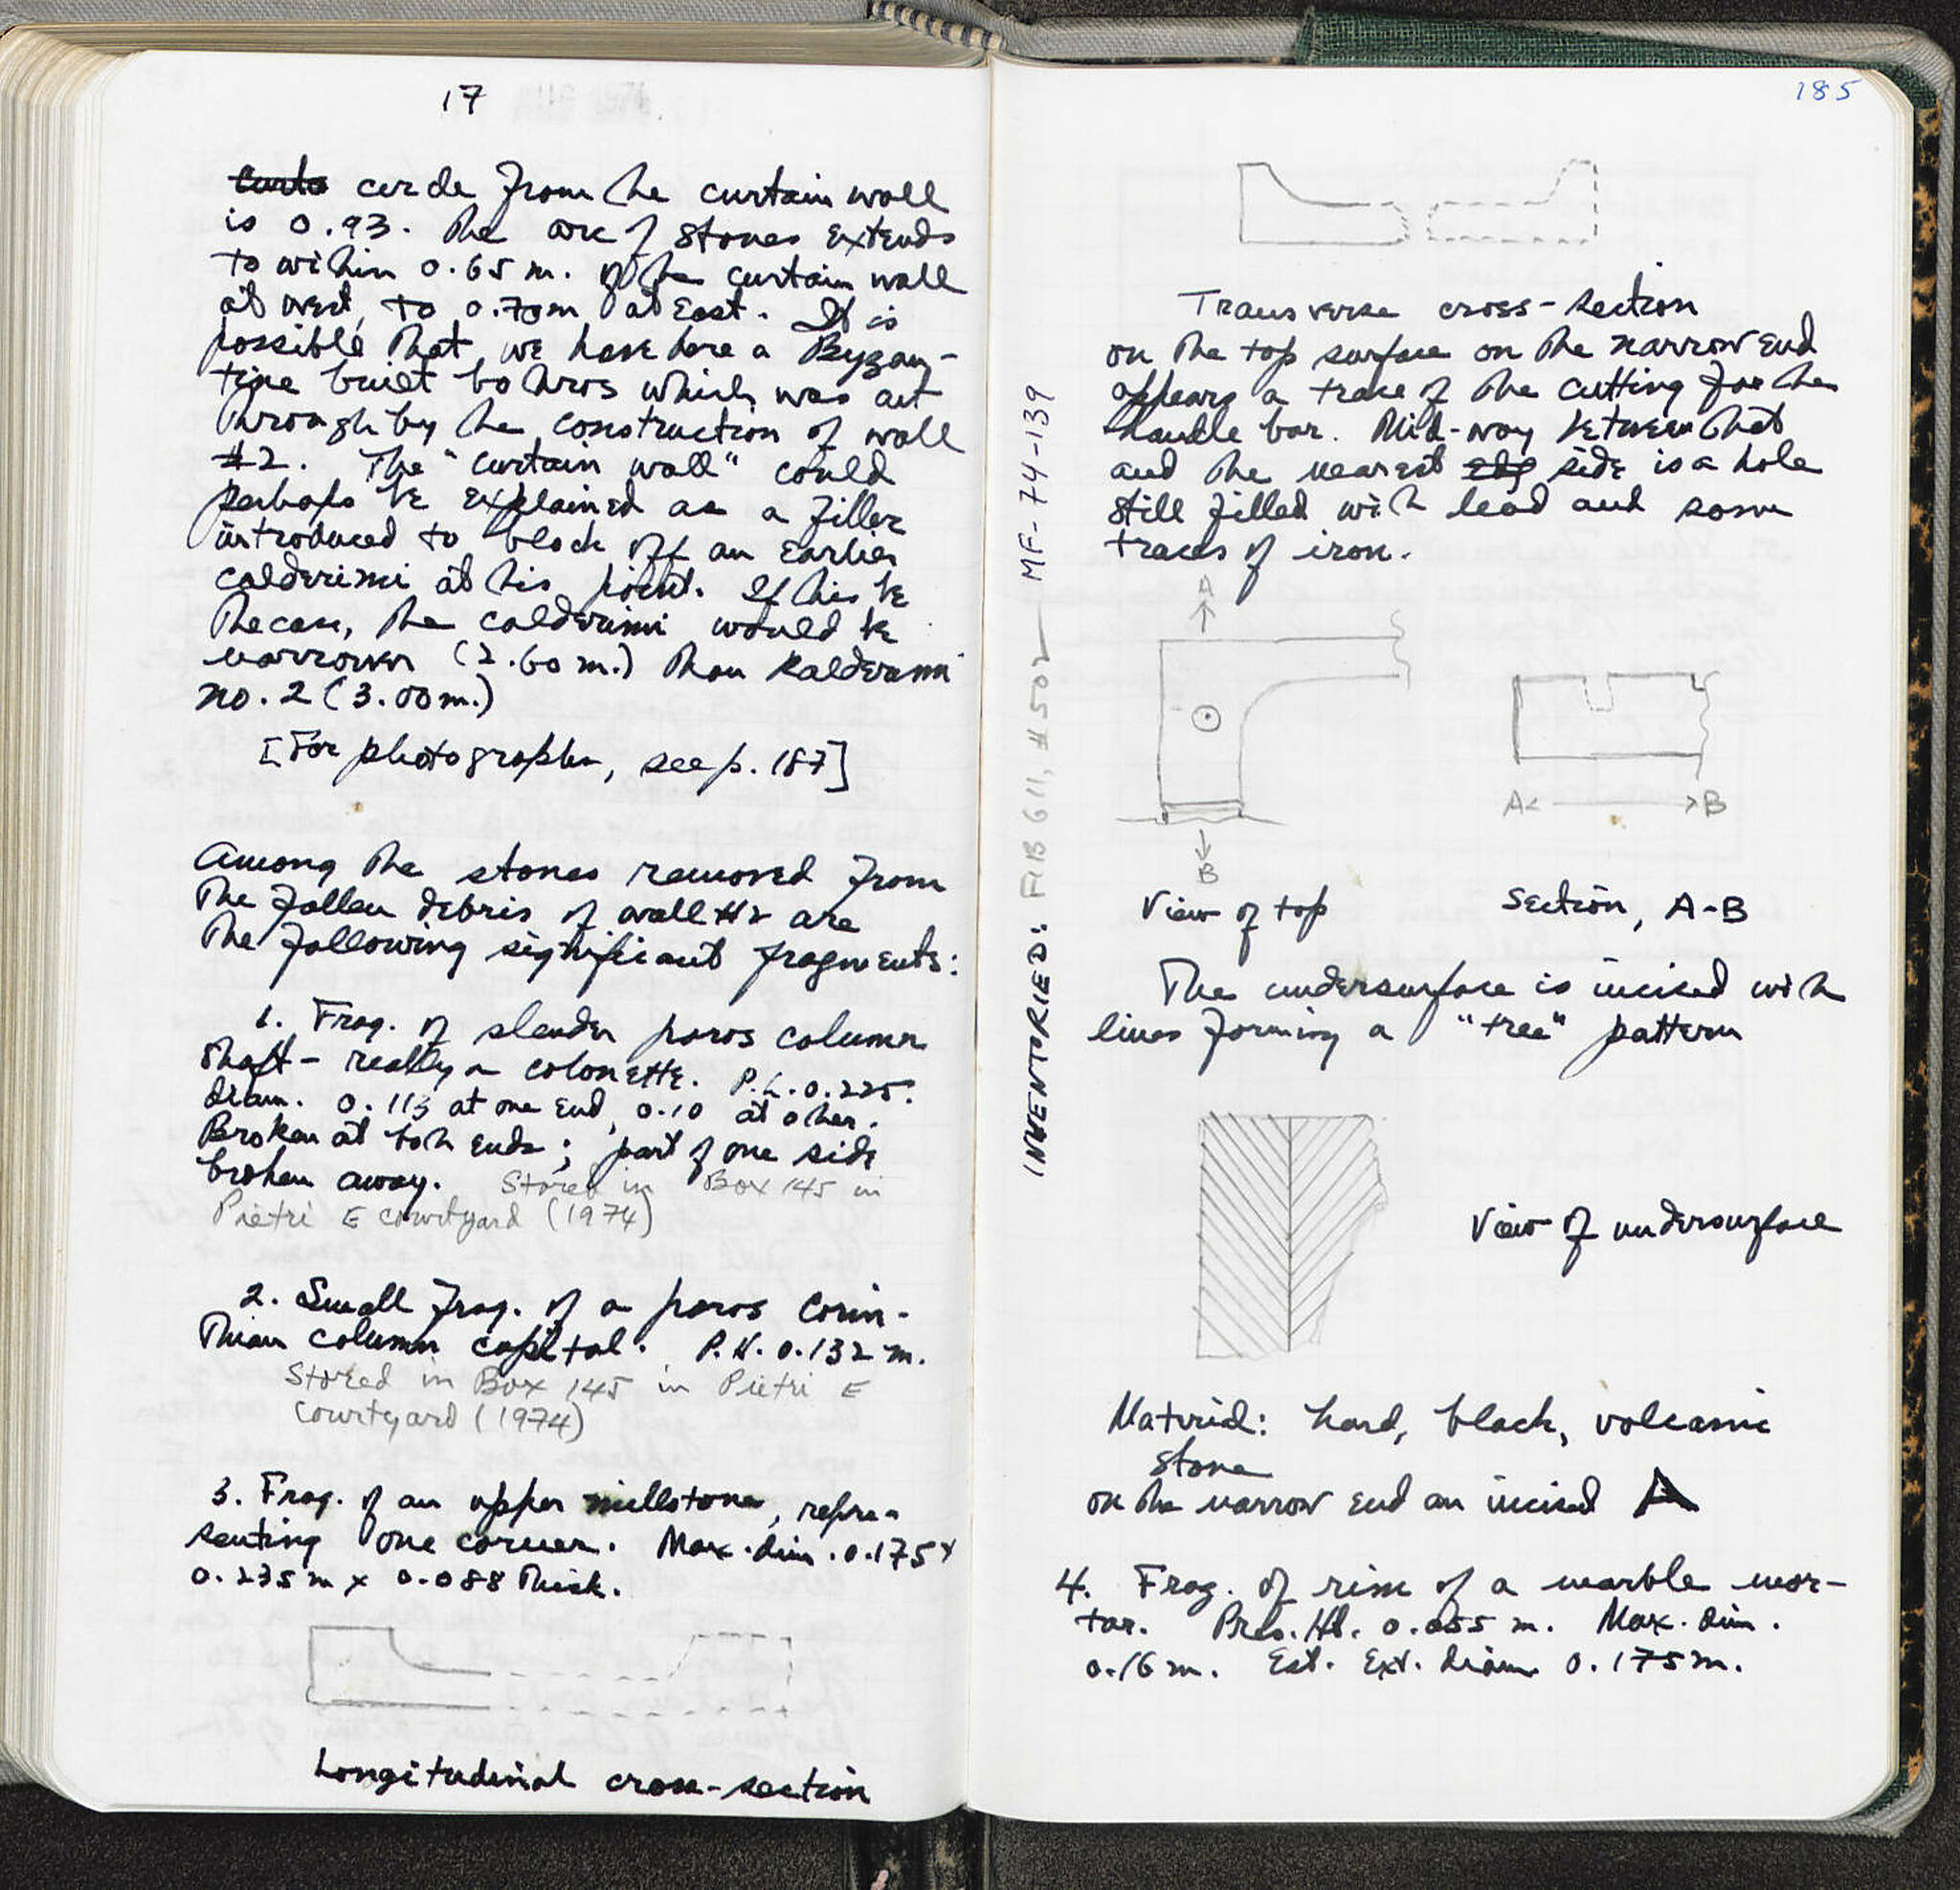 17
Curta circle from the curtain wall
is 0.93. The arc of stones extends
to within 0.65 m. of the curtain wall
at west, to 0.70m at East. It is
possible that we have here a Byzan-
tine built bothros which was cut
through by the construction of wall
#2. The "curtain wall" could
perhaps be explained as a filler
introduced to block off an earlier
calderimi at this point. If this be
the case, the calderimi would be
narrower (2.60 m.) than Kalderimi
no. 2 (3.00 m.)
[For photographs, see p. 187]
Among the stones removed from
the fallen debris of wall #2 are
the following significant fragments:
1. Frag. of slender poros column
shaft - really a colonette. P.L. 0.225.
diam. 0.113 at one end, 0.10 at other.
Broken at both ends; part of one side
broken away. Stored in Box 145 in
Pietri E courtyard (1974)
2. Small frag. of a poros Corin-
thian column capital. P.H. 0.132 m.
Stored in Box 145 in Pietri E
Courtyard (1974)
3. Frag. of an upper millstone, repre-
senting one corner. Max. dim. 0.175 x
0.235 m x 0.088 thick.
Longitudinal cross-section
185
Transverse cross-section
on the top surface on the narrow end
appears a trace of the cutting for the
handle bar. Mid-way between that
and the nearest side is a hole
still filled with lead and some
traces of iron.
A
B
View of top
A< >B
Section, A-B
The undersurface is incised with
lines forming a "tree" pattern
View of undersurface
Material: hard, black, volcanic
stone
on the narrow end an incised A
4. Frag. of rim of a marble mor-
tar. Pres. Ht. 0.055 m. Max. dim.
0.16 m. Est. Ext. diam. 0.175 m.
INVENTORIED: FIB 611, #502 — MF-74-139